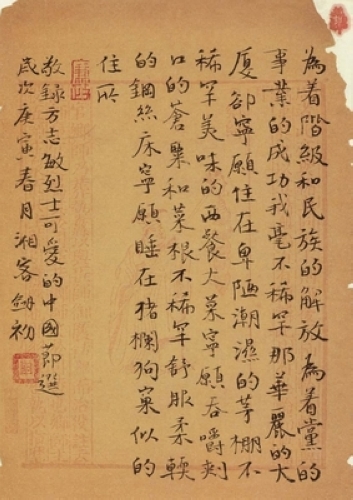 為着階級和民族的解放為着黨的
事業的成功我毫不稀罕那華麗的大
廈卻寧願住在卑陋潮濕的茅棚不
稀罕美味的西餐大菜寧願吞嚼刺
口的蒼粟和菜根不稀罕舒服柔軟
的鋼絲床寧願睡在猪欄狗窠似的
住所
敬録方志敏烈士可愛的中國節選
歲次庚寅春月湘客劒初